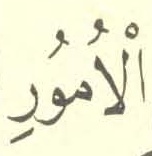 الْأُمُورِ